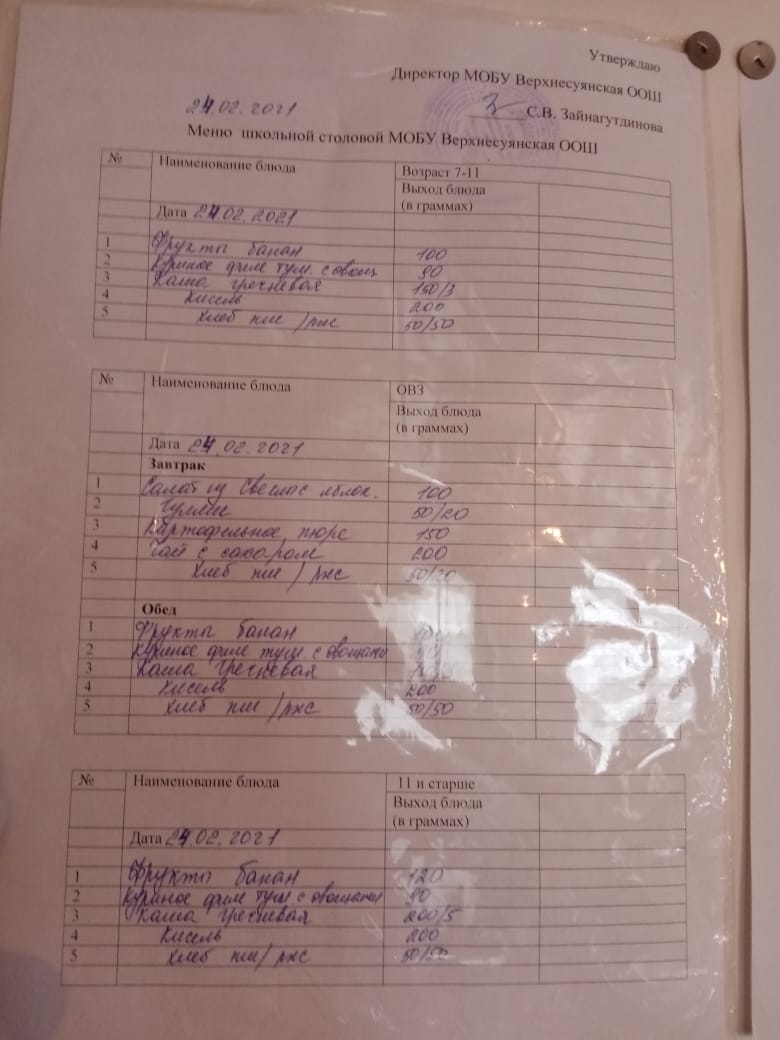 Утверждаю
Директор МОБУ Верхнесуянская ООШ
24.02.2021 С.В. Зайнагутдинова
Меню школьной столовой МОБУ Верхнесуянская ООШ
№ Наименование блюда Возраст 7-11
Выход блюда
(в граммах)
Дата 24.02.2021
1 Фрукты банан 100
2 Куриное филе туш. с овощ 90
3 Каша гречневая 150/3
4 Кисель 200
5 Хлеб пш / рж 50/50
№ Наименование блюда ОВЗ
Выход блюда
(в граммах)
Дата 24.02.2021
Завтрак
1 Салат из Свеклы с яблок. 100
2 Гуляш 50/20
3 Картофельное пюре 150
4 Чай с сахаром 200
5 Хлеб пш / рж 50/20
Обед
1 Фрукты банан
2 Куриное филе туш с овощами
3 Каша гречневая
4 Кисель 200
5 Хлеб пш / рж 50/50
№ Наименование блюда 11 и старше
Выход блюда
(в граммах)
Дата 24.02.2021
1 Фрукты банан 120
2 Куриное филе туш с овощами 90
3 Каша гречневая 200/5
4 Кисель 200
5 Хлеб пш / рж 50/50